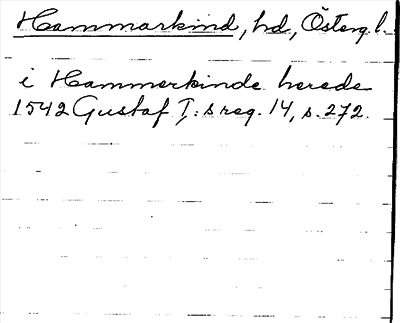 Hammarkind, hd, Österg. l.
i Hammerkinde herede
1542 Gustaf I:s reg. 14, s. 272.